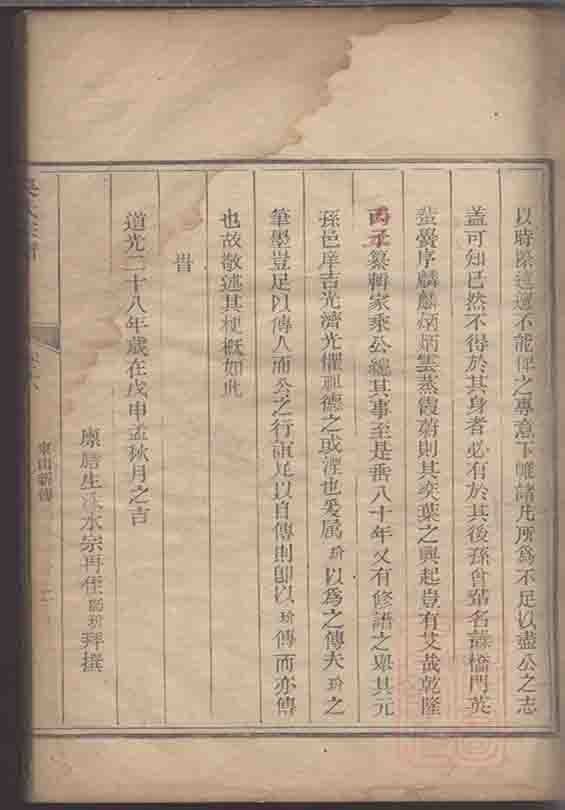 以時際迍邅不能俾之專意下帷諸凡所爲不足以盡公之志
蓋可知已然不得於其身者必有於其後孫曾輩名蘇橋門英
蜚黌序麟麟炳炳雲蒸霞蔚則其奕葉之興起豈有艾哉乾隆
丙子纂輯家乘公總其事至是垂八十年又有修譜之舉其元
孫邑庠吉光濟光懼祖德之或湮也爰属玠以爲之傳夫玠之
筆墨豈足以傳人而公之行誼足以自傳則即以玠傳而亦傳
也故敬述其梗概如此
旹
道光二十八年歲在戊申孟秋月之吉
廩膳生淡水宗再侄玠拜撰
東山新傳